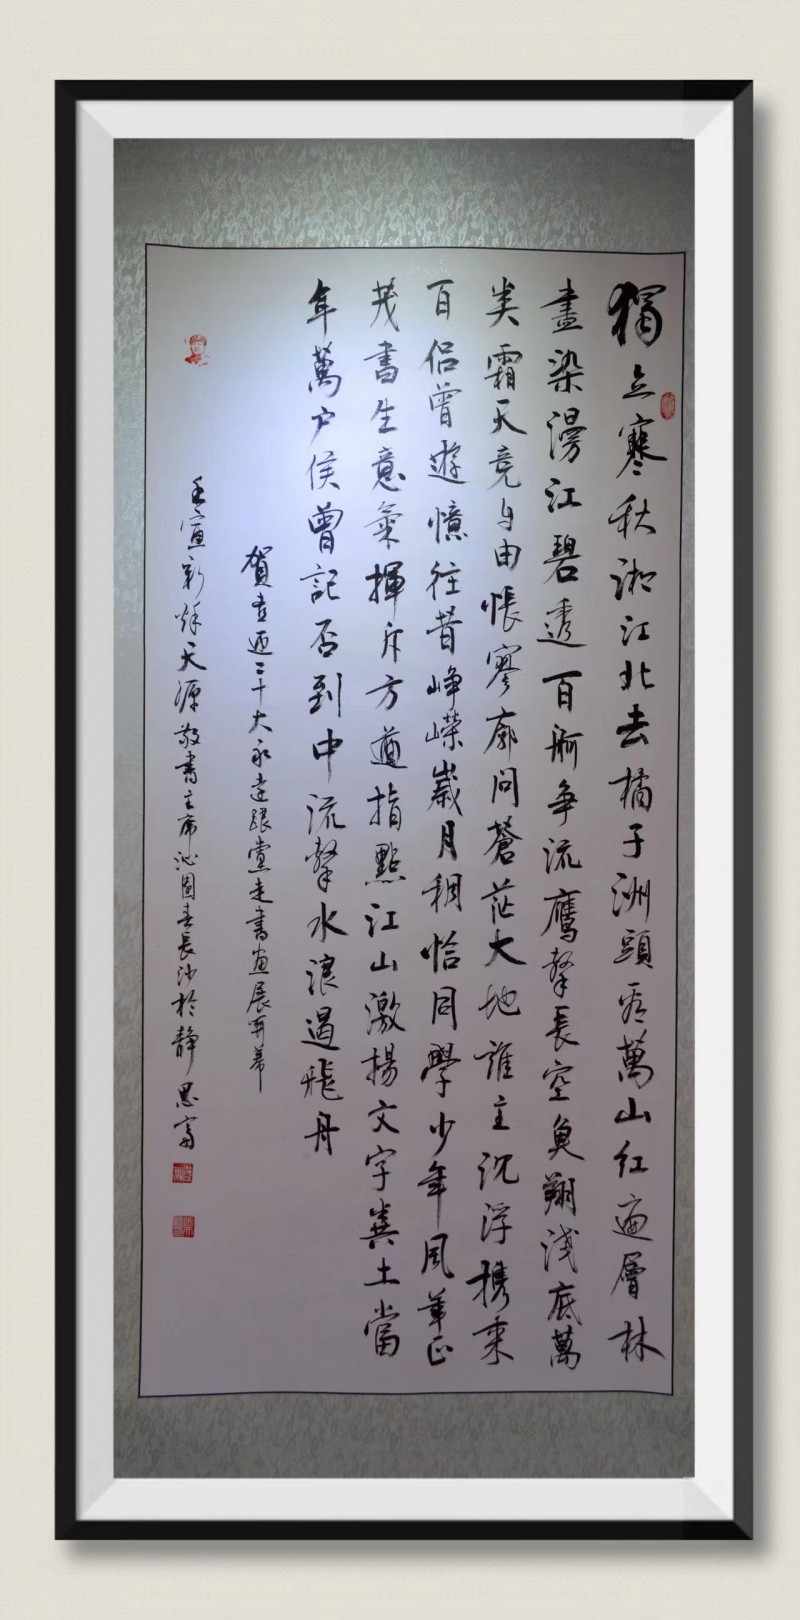 獨立寒秋湘江北去橘子洲頭看萬山紅遍層林
盡染漫江碧透百舸争流鷹擊長空魚翔淺底萬
类霜天竞自由悵寥廓問蒼茫大地誰主沉浮携来
百侣曾遊憶往昔峥嵘歲月稠恰同學少年風華正
茂書生意氣揮斥方遒指點江山激揚文字糞土當
年萬户侯曾記否到中流擊水浪遏飛舟
賀喜迎二十大永遠跟黨走書画展開幕
壬寅新秋天源敬書主席沁園春長沙於静思斋